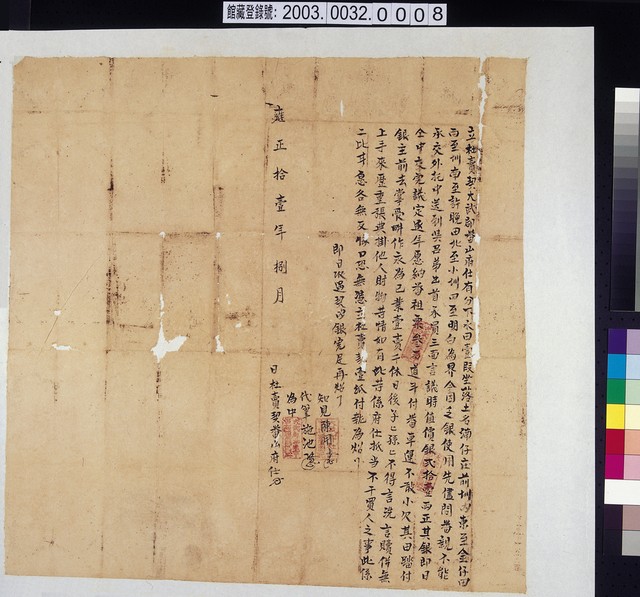 館藏登錄號: 2003.0032.0008
立杜賣契大武郡番山府仕有分下水田壹段坐落土名湳仔庄前圳 東至全仔田
西至圳南至許晚田北至小圳四至明白為界今因乏銀使用先儘問番親不能
承交外托中送到吳 弟出首承買三面言議時值價銀貳拾壹両正其銀即日
仝中交完議定遞年愿納番租粟 道斗付番 運不敢小欠其田踏付
銀主前去掌管耕作永為己業壹賣二休日後子孫不得言洗言贖併無
上手來歷重張典掛他人財物等情如有此等係府仕抵當不干買人之事此係
二比甘愿各無反悔口恐無憑立杜賣契壹紙付執為炤
即日收過契內銀完足再炤
知見
代筆 施池
為中
雍正拾壹年捌月 日杜賣契番山府仕